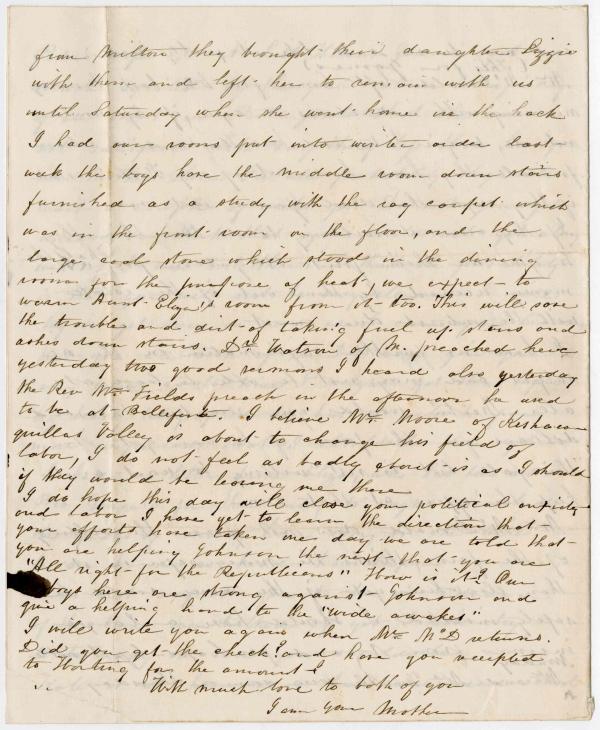 from Milton they brought their daughter Lizzie
with them and left her to remain with us
until Saturday when she went home in the hack
I had our rooms put into winter order last
week the boys have the middle room down stairs
furnished as a study with the rag carpet which
was in the front room on the floor, and the
large coal stove which stood in the dining
room for the purpose of heat, we expect to
warm Aunt Eliza's room from it too. This will save
the trouble and dirt of taking fuel up stairs and
ashes down stairs. Dr. Watson of M. preached here
yesterday two good sermons I heard also yesterday
the Rev Mr. Fields preach in the afternoon he used
to be at Bellefonte. I believe Mr. Moore of Kishaco
quillas Valley is about to change his field of
labor, I do not feel as badly about it as I should
if they would be leaving me there
I do hope this day will close your political anxiety
and labor I have yet to learn the direction that
your efforts have taken one day we are told that
you are helping Johnson the next that you are
"All right for the Republicans" How is it? Our
boys here are strong against Johnson and
give a helping hand to the "wide awakes"
I will write you again when Mr. McD returns.
Did you get the check? and have you receipted
to for the amount?
With much love to both of you
I am your Mother